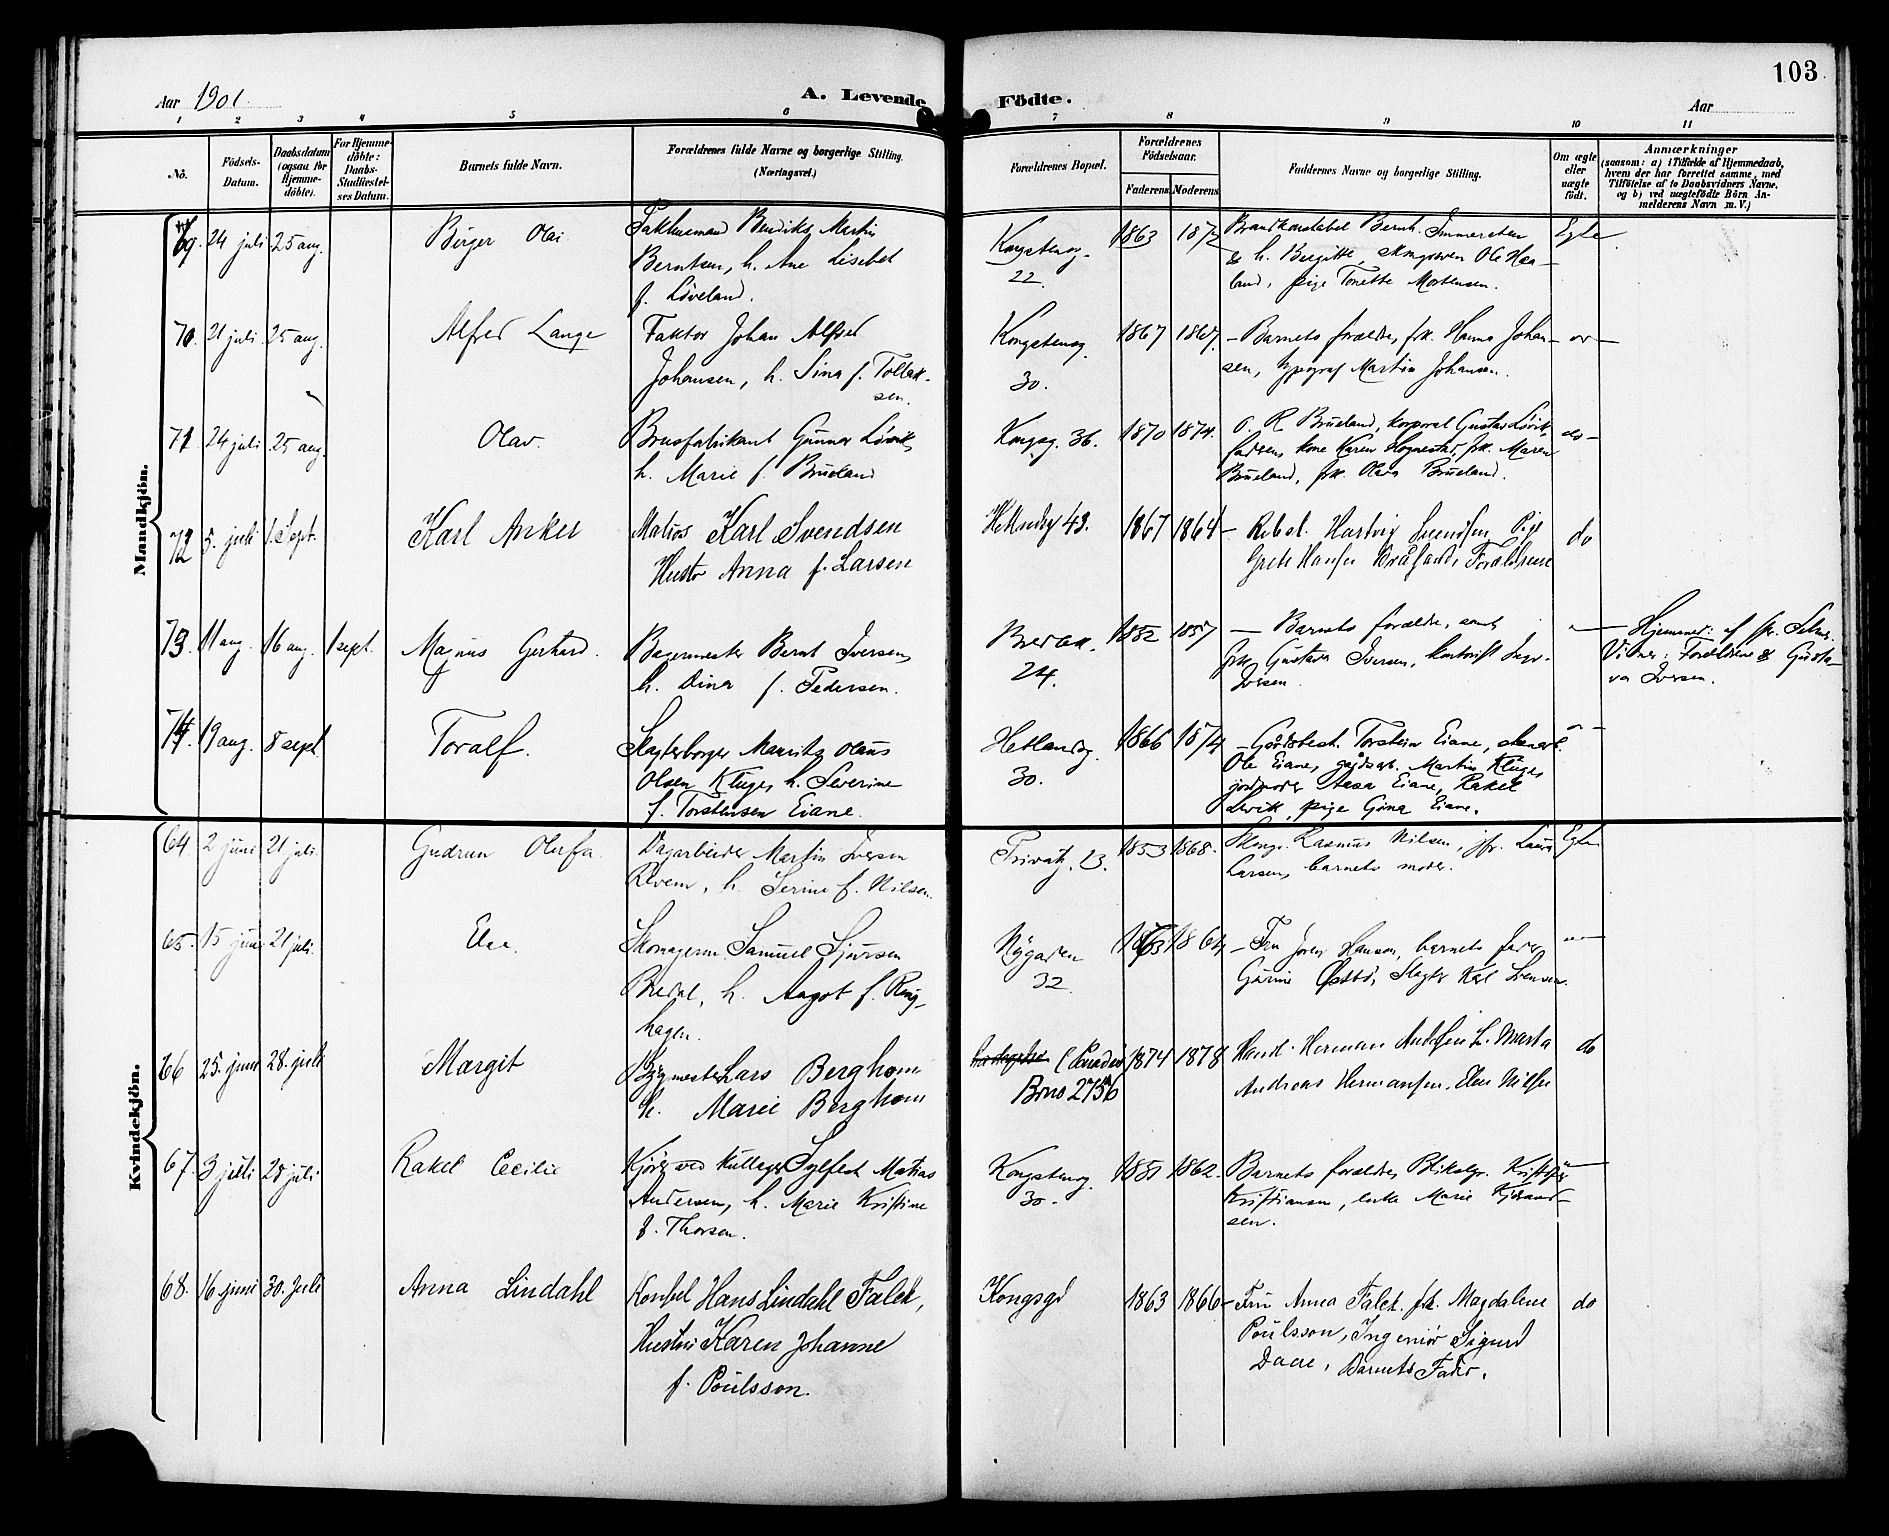 103
Aar 1901.
A. Levende Födte.
Aar
1 2 3 4 5 6 7 8 9 10 11
No.
Födsels-Datum.
Daabsdatum (ogsaa för Hjemme-döbte).
For Hjemme-döbte: Daabs-Stadfæstel-ses Datum.
Barnets fulde Navn.
Forældrenes fulde Navne og borgerlige Stilling.
(Næringsvei.)
Forældrenes Bopæl.
Forældrenes Födselsaar.
Faderens. Moderens.
Faddernes Navne og borgerlige Stilling.
Om ægte eller uægte födt.
Anmærkninger
(saasom: a) i Tilfælde af Hjemmedaab,
hvem der har forrettet samme, med
Tilföielse af to Daabsvidners Navne,
og b) ved uægtefödte Börn An-
melderens Navn m. V.)
Mandkjön.
69. 24 juli 25 aug. Birger Olai
Pakhusmand Bendiks Martin
Berntsen, h. Ane Lisebet
f. Løveland.
Kongstensg.
22.
1863 1872
& h. Bergitte, Ole Haa-
land, pige Tonette Mortensen.
Egte
70. 21 juli 25 aug. Alfred Lange
Faktor Johan Alfred
Johansen, h. Sina f. Tollak-
sen.
Kongstensg.
30.
1867 1867.
– Barnets forældre, frk. Hanna Johan-
sen, typograf Martin Johansen.
71 24 juli 25 aug. Olav.
Brusfabrikant Gunnar Løvik,
h. Marie f. Brueland
Kongsg. 36.
1870 1874.
O. R. Brueland, korporal Gustav Løvik,
fadrens kone Karen Hognestad, frk. Maren
Brueland, frk. Olava Brueland.
do-
72 5. juli 1. Sept. Karl Anker
Matros Karl Svendsen
Hustr Anna f. Larsen
Hetlandsg 43.
1867 1864
– Rebsl. Hartvig Svendsen Pige
Grete Hansen Forældrene
do
73. 11 aug. 16 aug. 1 sept. Magnus Gerhard.
Bagermester Bernt Iversen,
h. Dina f. Pedersen.
Bredbak.
24.
1852 1857
– Barnets forældre, samt
frk Gustava Iversen,
Iversen.
– Hjemmed: af
Vidner: Forældrene & Gusta-
va Iversen.
74. 19 aug. 8 sept. Toralf.
Slagterborger Mauritz Olaus
Olsen Kluge, h. Severine
f. Torstensen Eiane.
Hetlandsg.
30.
1866 1874
– Gårdbest. Torstein Eiane, stenarb.
Ole Eiane, gårdsarb. Martin Kluge,
jordmoder Aasa Eiane, Rakel
Løvik, pige Gina Eiane.
Kvindekjön.
64. 2 juni 21 juli. Gudrun Olufa.
Dagarbeider Martin Iversen
h. Serine f. Nilsen.
Privatg. 23.
1853 1868.
Rasmus Nilsen, jfr. Laura
Larsen, barnets moder.
Egte
65. 15 juni 21 juli. Else.
Skomagerm. Samuel Sjursen
Bredal, h. Aagot f. Ring-
hagen.
Nygaden
32.
1863 1864
– Fru Hansen, barnets fader,
Gurine Østbø, Slagter Karl Svensen.
66 25. juni 28. juli Margit
Bygmester Lars Berghom
h. Marie Berghom
1874 1878
Hand. Herman Andersen h. Marta
Andreas Hermansen, Elen Nilsen
do
67. 3 juli 28 juli Rakel Cecilie
Kjører ved Kullager Sylfest Matias
Andersen, h. Marie Kristine
f. Thorsen.
Kongstensg.
30.
1862.
Barnets forældre, Bliksl. Kristofer
Kristiansen, enke Marie Gjerand-
sen.
68. 16 juni 30. Juli Anna Lindahl
Konsul Hans Lindahl Falck,
Hustru Karen Johanne
f. Poulsson.
Kongsgd
1863 1866
– Fru Anna Falck. frk. Magdalene
Poulsson, Ingeniør Sigurd
Daae, Barnets Fader.
do